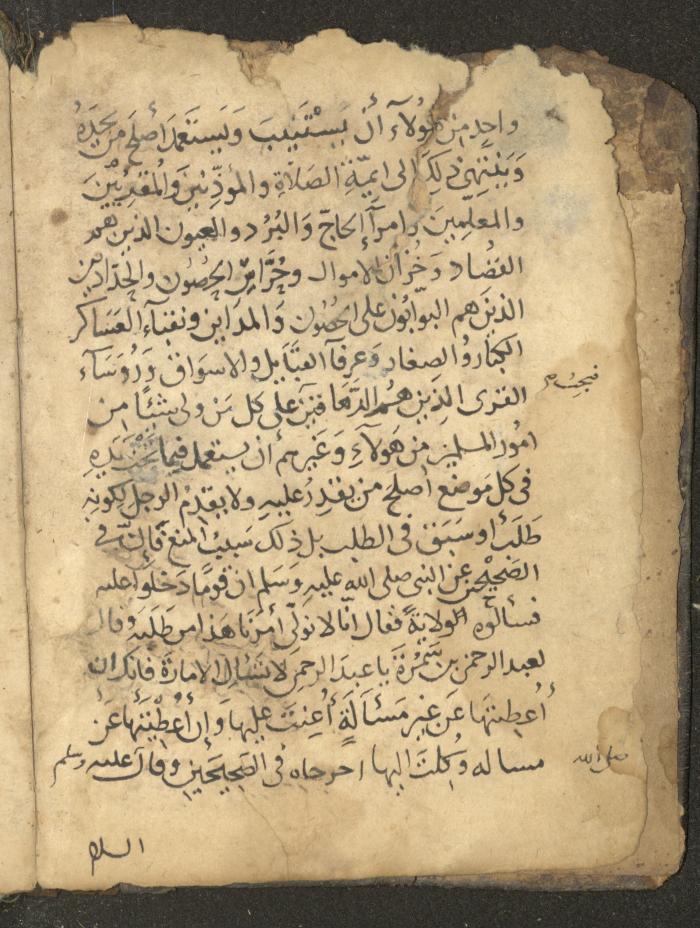 واحد من هؤلاء أن يستنيب ويستعمل أصلح من يجده
وينتهي ذلك إلى ايمة الصلاة والمؤذنين والمقريين
والمعلمين وامرآء الحاج والبرد والعيون الذين هم
القصاد وخزان الاموال وحراس الحصون والحدادين
الذين هم البوابون على الحصون والمداين ونقبآء العساكر
الكبار والصغار وعرفآ القبآيل والاسواق ورؤسآء
القرى الذين هم الدهاقين على كل من ولي شيئا من
فيجب
امور المسلمين من هولآء وغيرهم أن يستعمل فيما تحت يده
في كل موضع أصلح من يقدر عليه ولا يقدم الرجل لكونه
طلب أو سبق في الطلب بل ذلك سبب المنع فإن في
الصحيحين عن النبي صلى الله عليه وسلم ان قوما دخلوا عليه
فسألوه الولاية فقال انا لا نولي أمرنا هذا من طلبه وقال
لعبد الرحمن بن سمرة يا عبد الرحمن لا تسئل الامارة فانك ان
أعطيتها عن غير مسألة أعنت عليها وإن أعطيتها عن
مساله وكلت اليها اخرجاه في الصحيحين وقال عليه وسلم
صلى الله
السلام